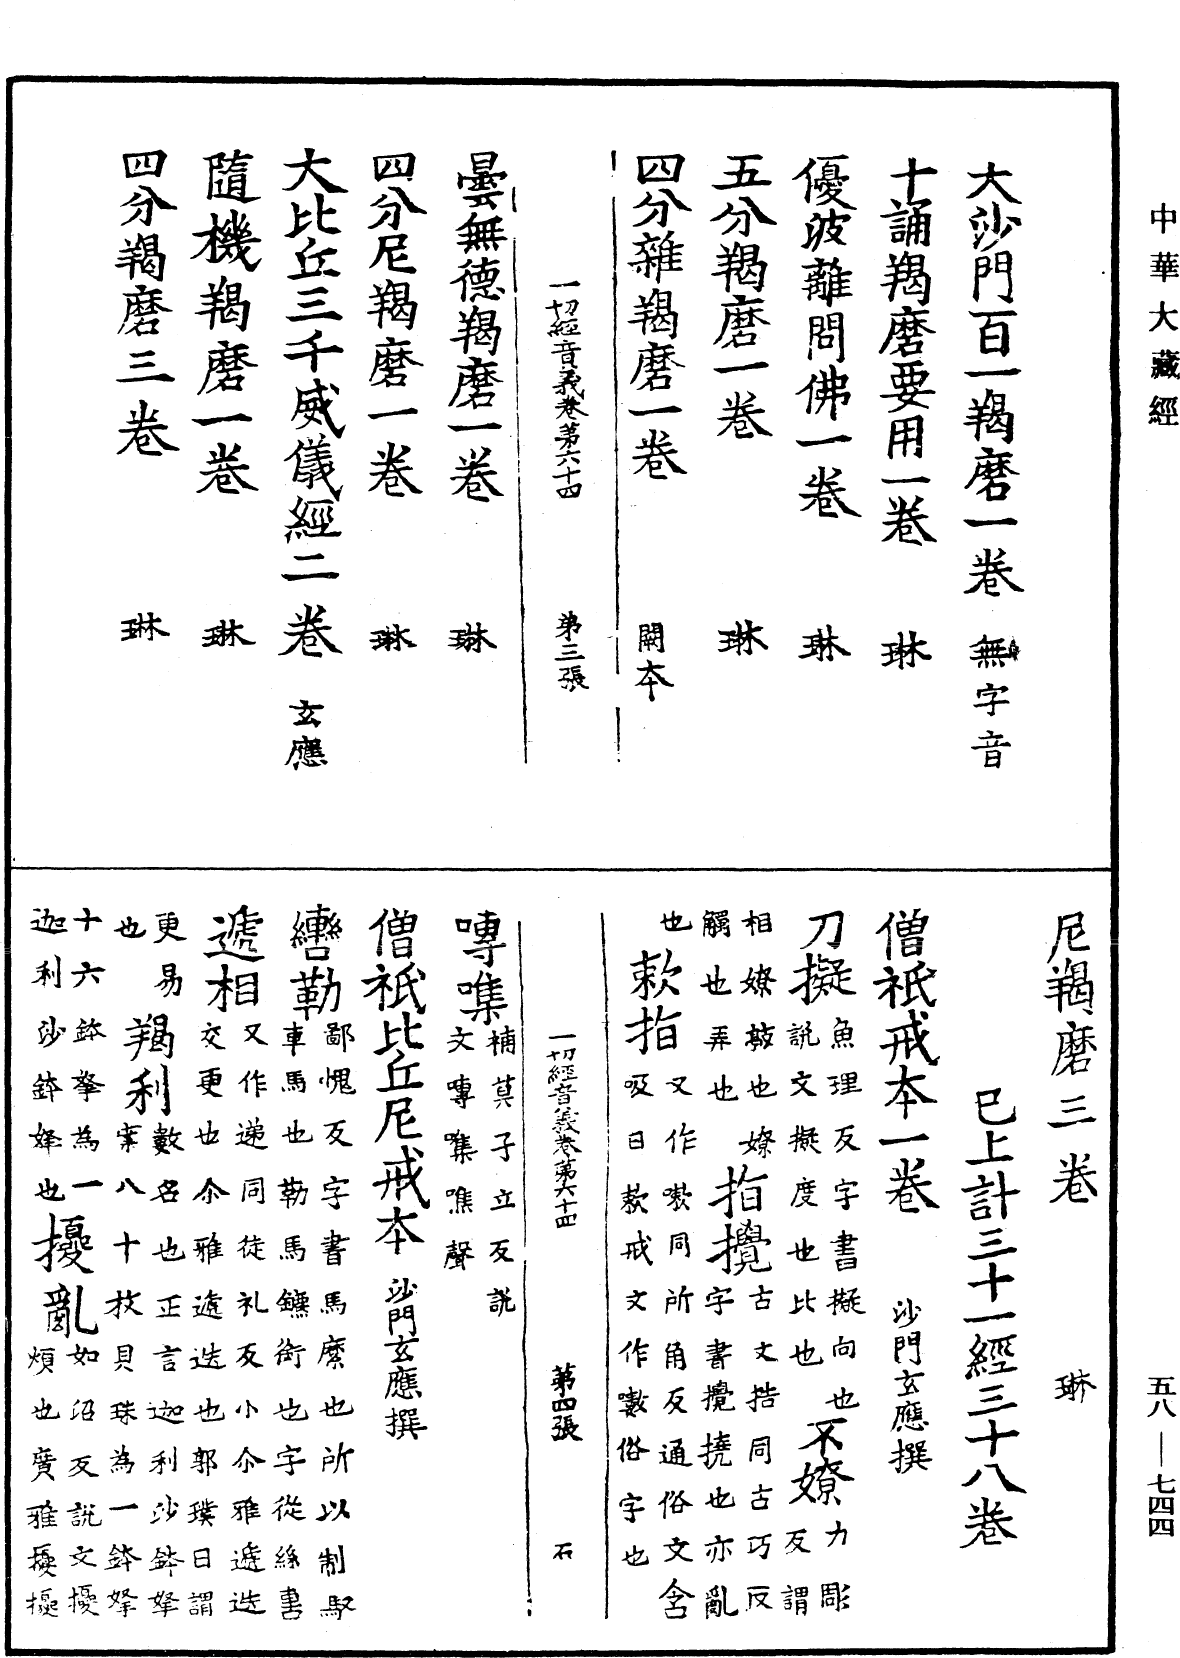 中華大藏經
大沙門百一羯磨一卷 無字音
十誦羯磨要用一卷 琳
優波離問佛一卷 琳
五分羯磨一卷 琳
四分雜羯磨一卷 闕本
一切經音義卷第六十四 第三張
曇無德羯磨一卷 琳
四分尼羯磨一卷 琳
大比丘三千威儀經二卷 玄應
隨機羯磨一卷 琳
四分羯磨三卷 琳
尼羯磨三卷 琳
巳上計三十一經三十八卷
僧祇戒本一卷 沙門玄應撰
刀擬魚理反字書擬向也說文擬度也比也不嫽力彫反謂
相嫽敲也嫽觸也弄也指攪古文捁同古巧反字書攪撓也亦亂
也欶指又作嗽同所角反通俗文含吸曰欶戒文作嗽俗字也
一切經音義卷第六十四 第四張 石
嗶噍補莫子立反說文嗶噍噍聲
僧祇比丘尼戒本 沙門玄應撰
轡勒鄙愧反字書馬縻也所以制馭車馬也勒馬鑣銜也字從絲書
遞相又作递同徒礼反小尒雅遞迭交更也尒雅遞迭也郭璞曰謂
更易也羯利數名也正言迦利沙鉢拏案八十枚貝珠為一鉢拏
十六鉢拏為一迦利沙鉢拏也擾亂如沼反說文擾煩也廣雅擾
五八—七四四